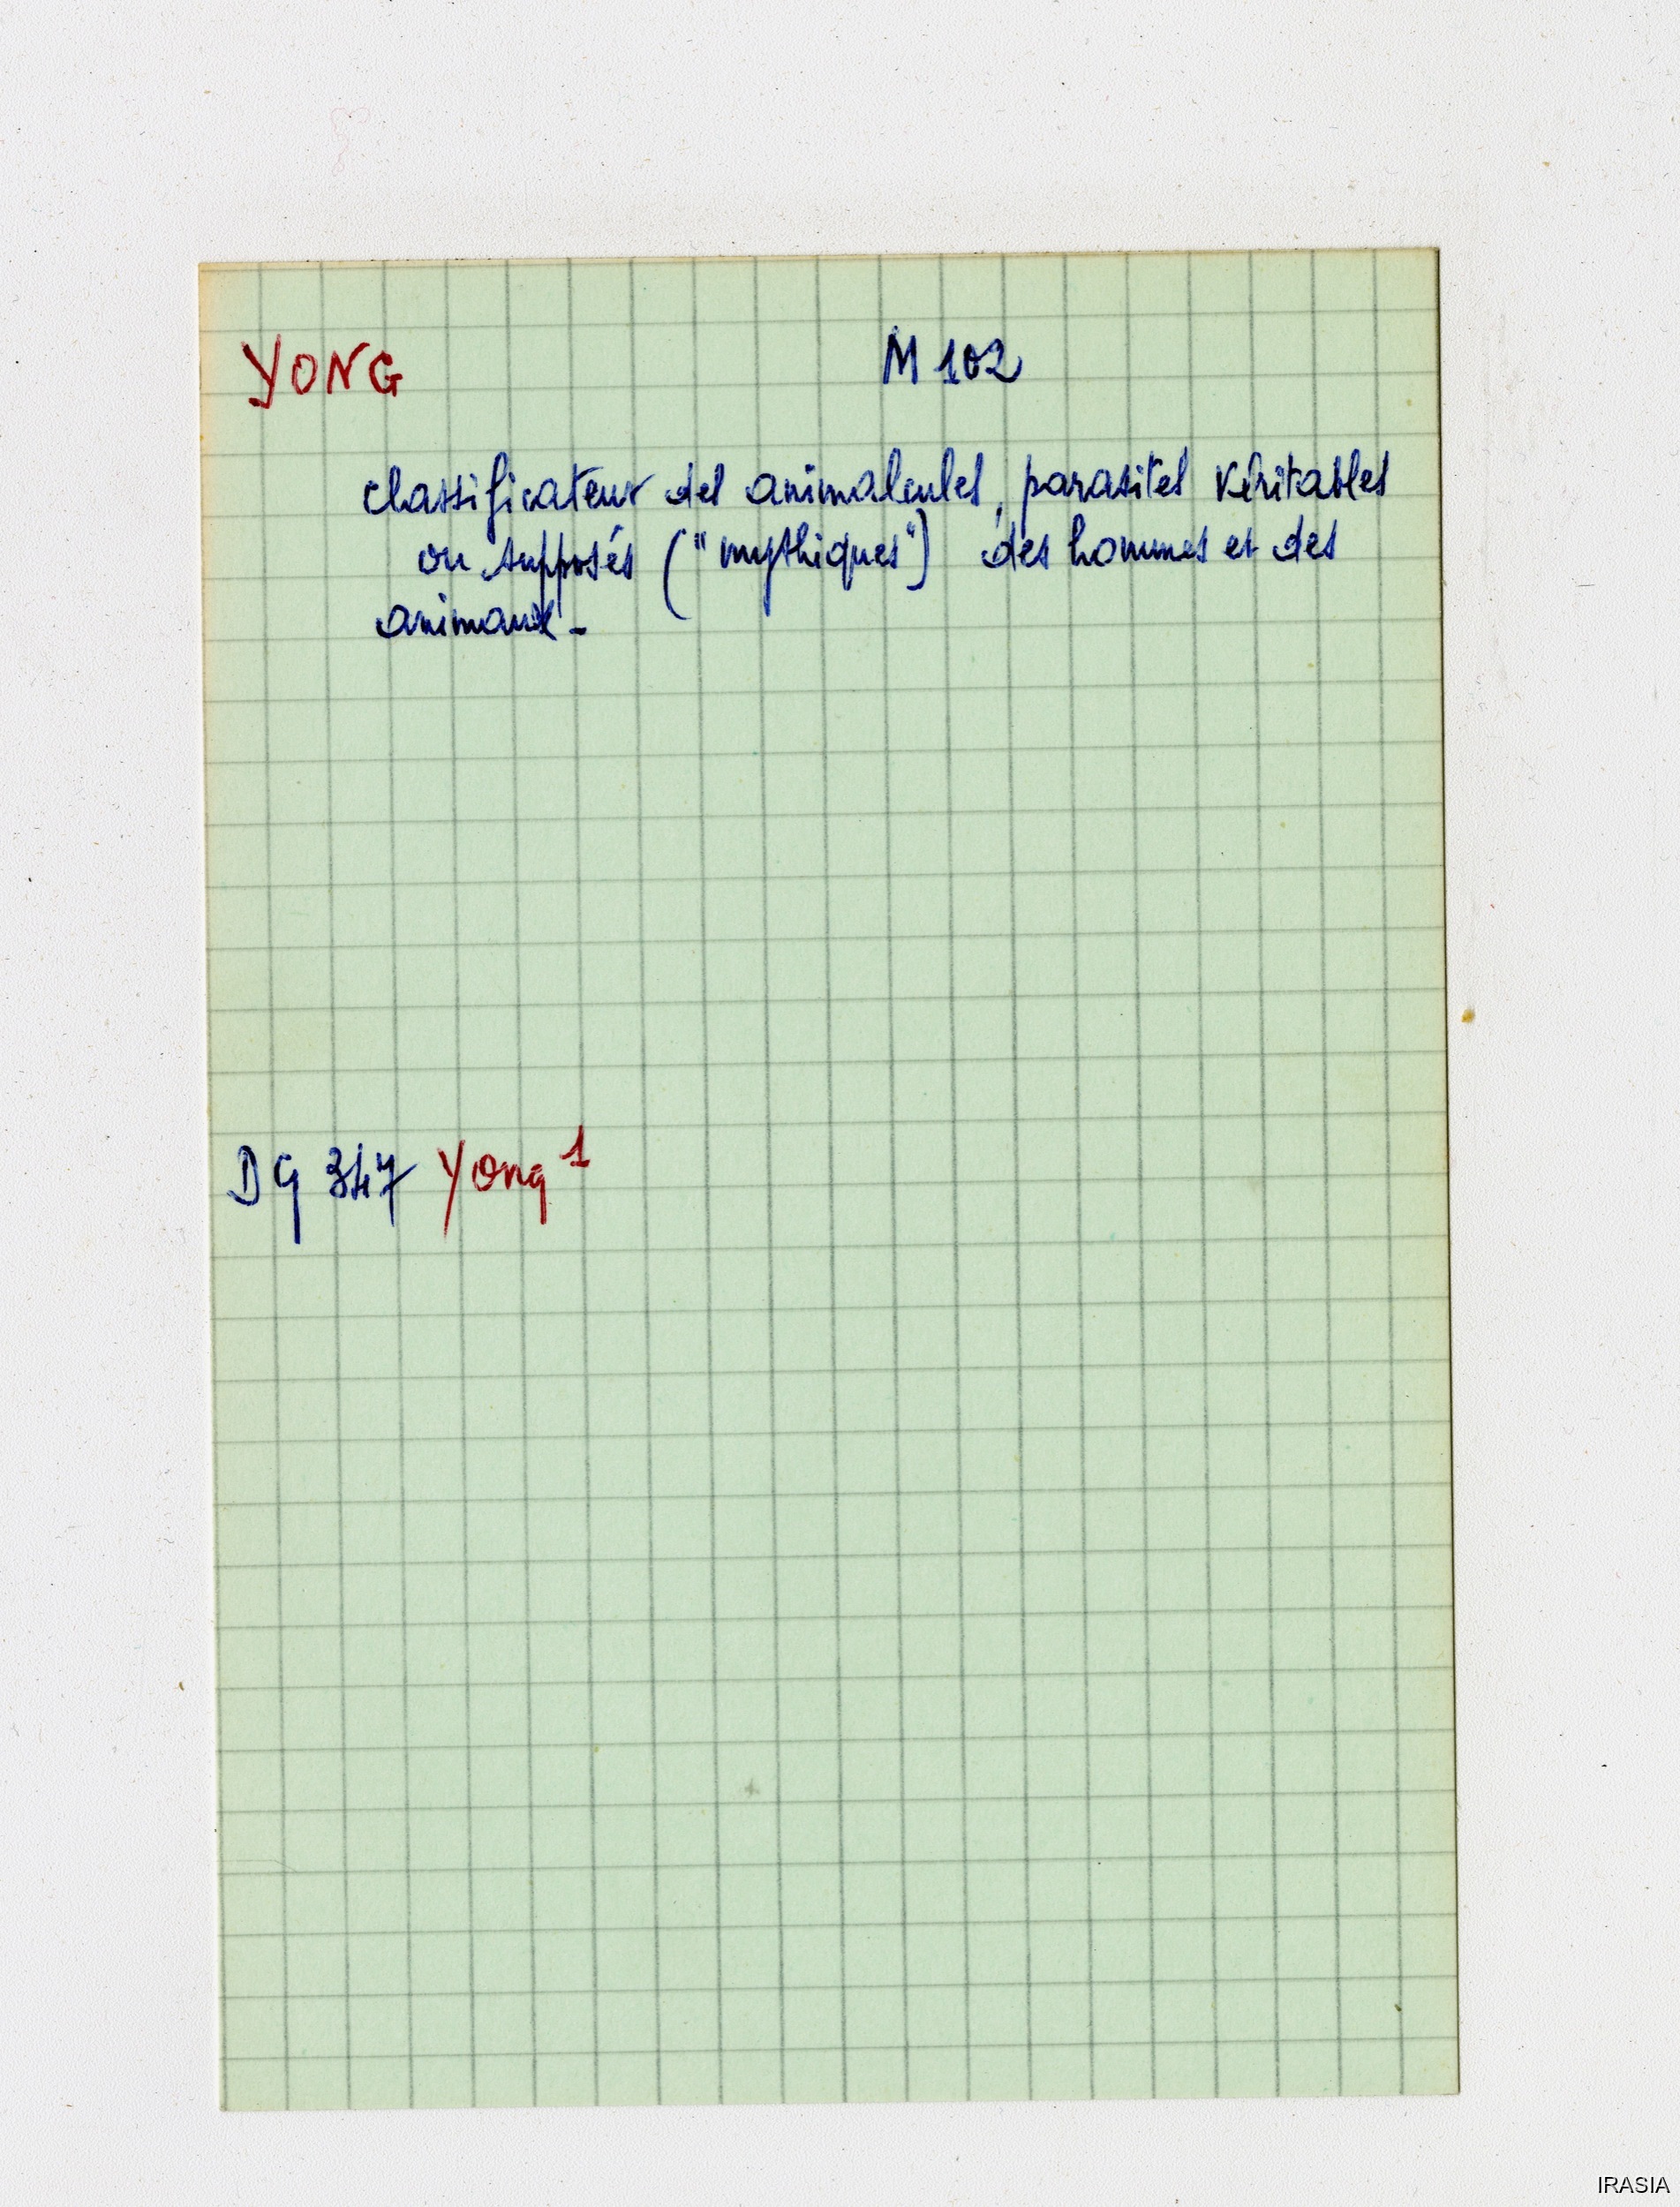 YONG M 102
classificateur des animalcules, parasites véritables
ou supposés ("mythiques") des hommes et des
animaux -
DG 347 Yong 1
IRASIA